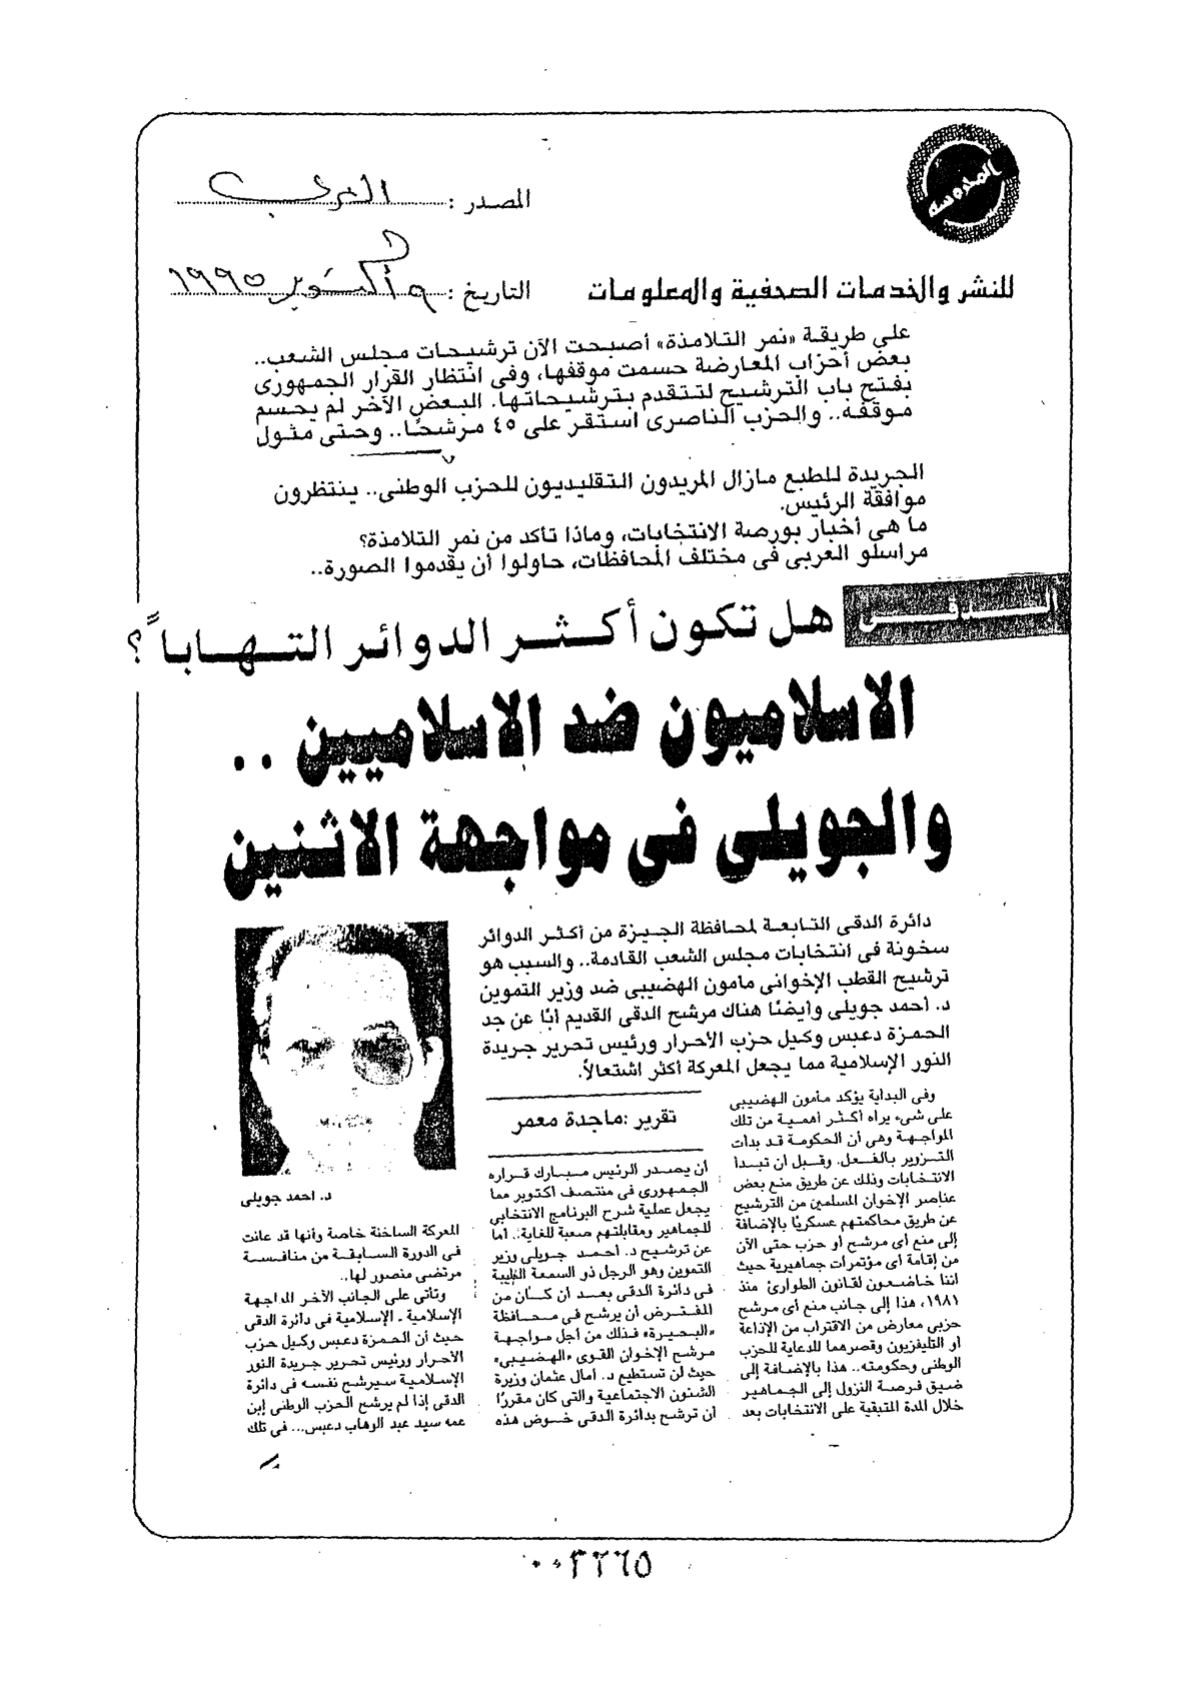 المحروسة
المصدر : العربى
للنشر والخدمات الصحفية والمعلومات
التاريخ : ٩ أكتوبر ١٩٩٥
على طريقة «نمر التلامذة» أصبحت الآن ترشيحات مجلس الشعب..
بعض أحزاب المعارضة حسمت موقفها، وفى انتظار القرار الجمهورى
بفتح باب الترشيح لتتقدم بترشيحاتها. البعض الآخر لم يحسم
موقفه.. والحزب الناصرى استقر على ٤٥ مرشحًا.. وحتى مثول
الجريدة للطبع مازال المريدون التقليديون للحزب الوطنى.. ينتظرون
موافقة الرئيس.
ما هى أخبار بورصة الانتخابات، وماذا تأكد من نمر التلامذة؟
مراسلو العربى فى مختلف المحافظات، حاولوا أن يقدموا الصورة..
الدقى
هل تكون أكثر الدوائر التهاباً؟
الاسلاميون ضد الاسلاميين ..
والجويلى فى مواجهة الاثنين
دائرة الدقى التابعة لمحافظة الجيزة من أكثر الدوائر
سخونة فى انتخابات مجلس الشعب القادمة.. والسبب هو
ترشيح القطب الإخوانى مامون الهضيبى ضد وزير التموين
د. أحمد جويلى وأيضًا هناك مرشح الدقى القديم أبًا عن جد
الحمزة دعبس وكيل حزب الأحرار ورئيس تحرير جريدة
النور الإسلامية مما يجعل المعركة أكثر اشتعالاً.
تقرير :ماجدة معمر
وفى البداية يؤكد مأمون الهضيبى
على شىء يراه أكثر أهمية من تلك
المواجهة وهى أن الحكومة قد بدأت
التزوير بالفعل. وقبل أن تبدأ
الانتخابات وذلك عن طريق منع بعض
عناصر الإخوان المسلمين من الترشيح
عن طريق محاكمتهم عسكريًا بالإضافة
إلى منع أى مرشح أو حزب حتى الآن
من إقامة أى مؤتمرات جماهيرية حيث
اننا خاضعون لقانون الطوارئ منذ
١٩٨١، هذا إلى جانب منع أى مرشح
حزبى معارض من الاقتراب من الإذاعة
او التليفزيون وقصرهما للدعاية للحزب
الوطنى وحكومته.. هذا بالإضافة إلى
ضيق فرصة النزول إلى الجماهير
خلال المدة المتبقية على الانتخابات بعد
أن يصدر الرئيس مبارك قراره
الجمهورى فى منتصف اكتوبر مما
يجعل عملية شرح البرنامج الانتخابى
للجماهير ومقابلتهم صعبة للغاية.. أما
عن ترشيح د. أحمد جويلى وزير
التموين وهو الرجل ذو السمعة الطيبة
فى دائرة الدقى بعد أن كان من
المفترض أن يرشح فى محافظة
«البحيرة» فذلك من أجل مواجهة
مرشح الإخوان القوى «الهضيبى»
حيث لن تستطيع د. آمال عثمان وزيرة
الشئون الاجتماعية والتى كان مقررًا
أن ترشح بدائرة الدقى خوض هذه
د. احمد جويلى
المعركة الساخنة خاصة وأنها قد عانت
فى الدورة السابقة من منافسة
مرتضى منصور لها..
وتأتى على الجانب الآخر المواجهة
الإسلامية ـ الإسلامية فى دائرة الدقى
حيث أن الحمزة دعبس وكيل حزب
الأحرار ورئيس تحرير جريدة النور
الإسلامية سيرشح نفسه فى دائرة
الدقى إذا لم يرشح الحزب الوطنى إبن
عمه سيد عبد الوهاب دعبس... فى تلك
٠٠٣٢٦٥